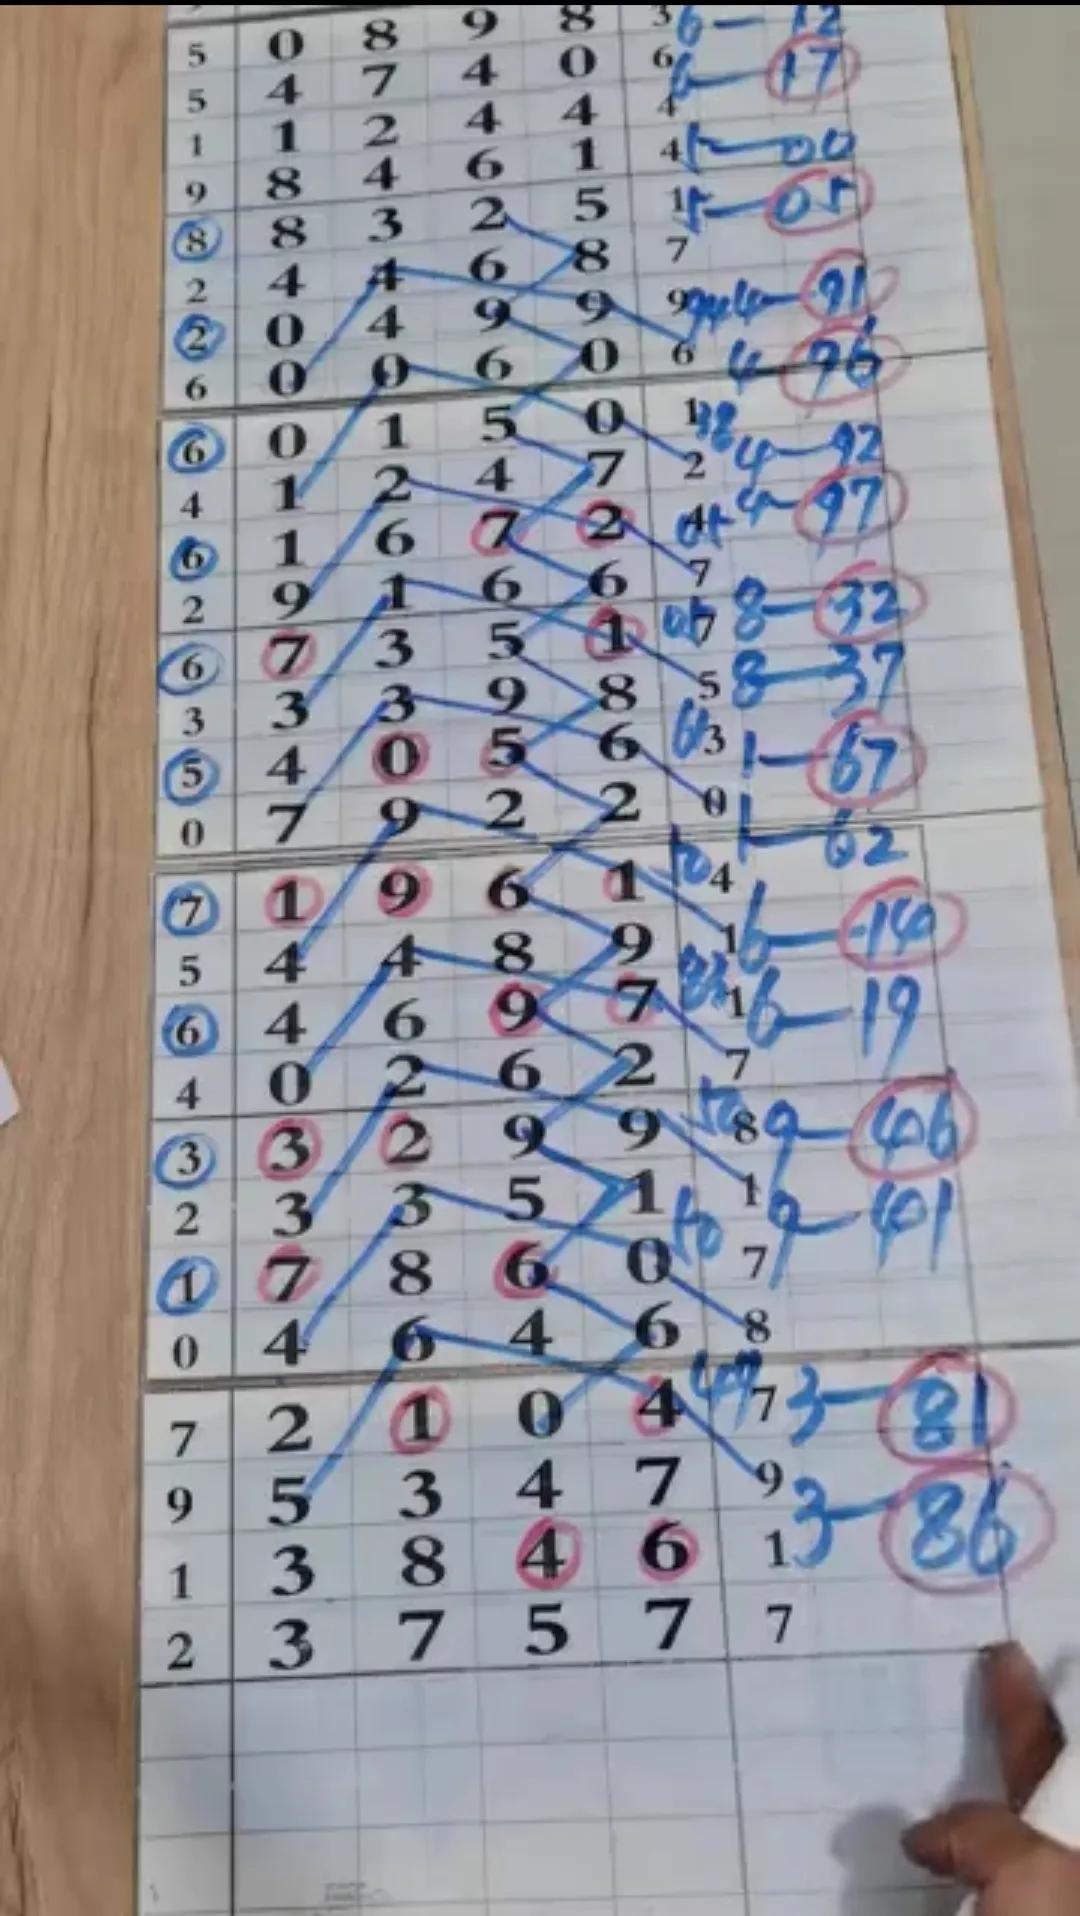 5 0 8 9 8 3 6-12
5 4 7 4 0 6 6-17
1 1 2 4 4 4
9 8 4 6 1 4 5-00
8 8 3 2 5 1 5-05
2 4 4 6 8 7
2 0 4 9 9 9 4-91
6 0 0 6 0 6 4-96
6 0 1 5 0 1 38 4-92
4 1 2 4 7 2
6 1 6 7 2 4 05 4-97
2 9 1 6 6 7
6 7 3 5 1 7 8-32
3 3 3 9 8 5 8-37
5 4 0 5 6 3 1-67
0 7 9 2 2 0 1-62
7 1 9 6 1 4 50
5 4 4 8 9 1 6-140
6 4 6 9 7 1 83 6-19
4 0 2 6 2 7
3 3 2 9 9 8 50 9-406
2 3 3 5 1 1 9-401
1 7 8 6 0 7 50
0 4 6 4 6 8
7 2 1 0 4 7 49 3-81
9 5 3 4 7 9
1 3 8 4 6 1 3-86
2 3 7 5 7 7